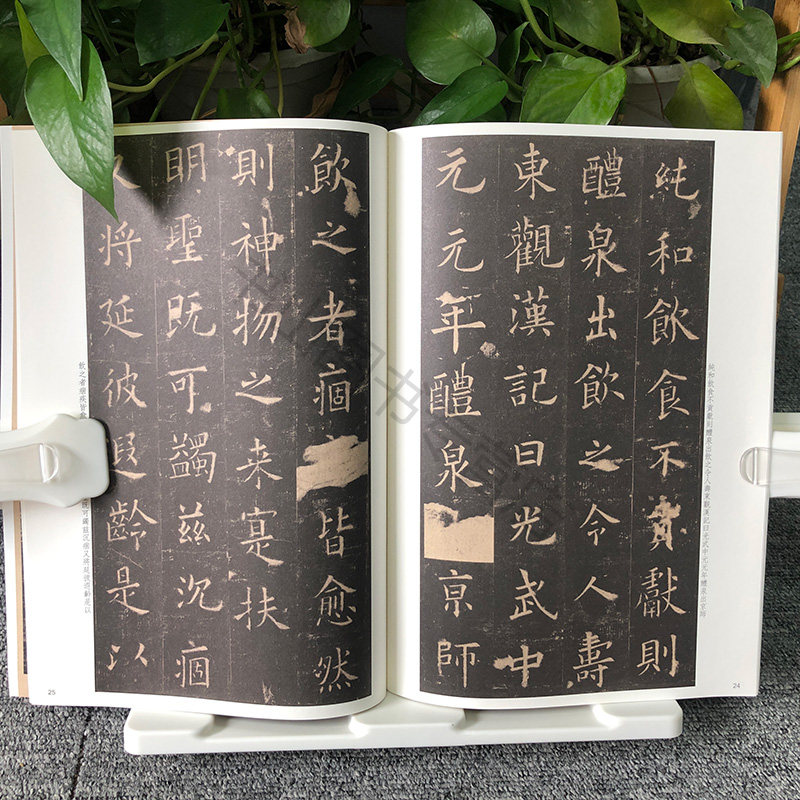 純和飲食不貢獻則
醴泉出飲之令人壽
東觀漢記曰光武中
元元年醴泉亰師
純和飲食不貢獻則醴泉出飲之令人壽東觀漢記曰光武中元元年醴泉出京師
24
飲之者痼皆愈然
則神物之来寔扶
明聖既可蠲兹沉痼
又將延彼遐齡是以
飲之者痼疾皆
可蠲兹沉痼又將延彼遐齡是以
25